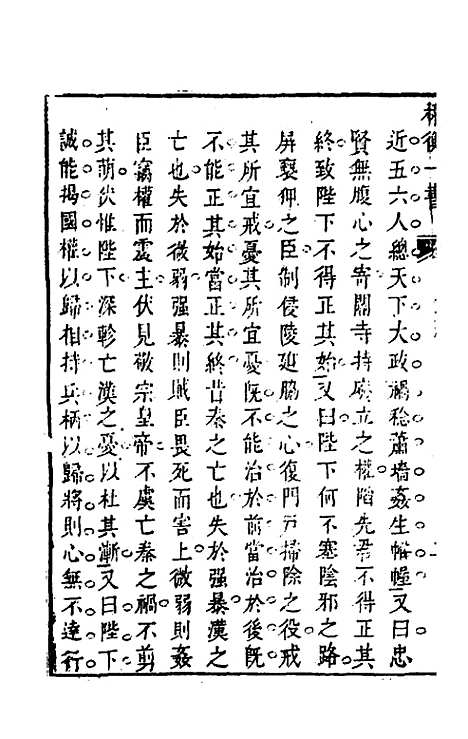 近五六人總天下大政禍稔蕭墻姦生帷幄又曰忠
賢無腹心之寄閽寺持廢立之權陷先君不得正其
終致陛下不得正其始又曰陛下何不塞陰邪之路
屏褻狎之臣制侵陵迫脇之心復門戶掃除之役戒
其所宜戒憂其所宜憂旣不能治於前當治於後旣
不能正其始當正其終昔秦之亡也失於强暴漢之
亡也失於微弱强暴則賊臣畏死而害上微弱則姦
臣竊權而震主伏見敬宗皇帝不虞亡秦之禍不剪
其萌惟陛下深軫亡漢之憂以杜其漸又曰陛下
誠能揭國權以歸相持兵柄以歸將則心無不達行